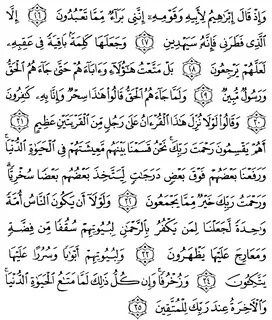 وَإِذْ قَالَ إِبْرَٰهِيمُ لِأَبِيهِ وَقَوْمِهِۦٓ إِنَّنِى بَرَآءٌ مِّمَّا تَعْبُدُونَ ٢٦ إِلَّا
ٱلَّذِى فَطَرَنِى فَإِنَّهُۥ سَيَهْدِينِ ٢٧ وَجَعَلَهَا كَلِمَةًۢ بَاقِيَةً فِى عَقِبِهِۦ
لَعَلَّهُمْ يَرْجِعُونَ ٢٨ بَلْ مَتَّعْتُ هَٰٓؤُلَآءِ وَءَابَآءَهُمْ حَتَّىٰ جَآءَهُمُ ٱلْحَقُّ
وَرَسُولٌ مُّبِينٌ ٢٩ وَلَمَّا جَآءَهُمُ ٱلْحَقُّ قَالُوا۟ هَٰذَا سِحْرٌ وَإِنَّا بِهِۦ كَٰفِرُونَ
٣٠ وَقَالُوا۟ لَوْلَا نُزِّلَ هَٰذَا ٱلْقُرْءَانُ عَلَىٰ رَجُلٍ مِّنَ ٱلْقَرْيَتَيْنِ عَظِيمٍ ٣١
أَهُمْ يَقْسِمُونَ رَحْمَتَ رَبِّكَ ۚ نَحْنُ قَسَمْنَا بَيْنَهُم مَّعِيشَتَهُمْ فِى ٱلْحَيَوٰةِ ٱلدُّنْيَا ۚ
وَرَفَعْنَا بَعْضَهُمْ فَوْقَ بَعْضٍ دَرَجَٰتٍ لِّيَتَّخِذَ بَعْضُهُم بَعْضًا سُخْرِيًّا ۗ
وَرَحْمَتُ رَبِّكَ خَيْرٌ مِّمَّا يَجْمَعُونَ ٣٢ وَلَوْلَآ أَن يَكُونَ ٱلنَّاسُ أُمَّةً
وَٰحِدَةً لَّجَعَلْنَا لِمَن يَكْفُرُ بِٱلرَّحْمَٰنِ لِبُيُوتِهِمْ سُقُفًا مِّن فِضَّةٍ
وَمَعَارِجَ عَلَيْهَا يَظْهَرُونَ ٣٣ وَلِبُيُوتِهِمْ أَبْوَٰبًا وَسُرُرًا عَلَيْهَا
يَتَّكِـُٔونَ ٣٤ وَزُخْرُفًا ۚ وَإِن كُلُّ ذَٰلِكَ لَمَّا مَتَٰعُ ٱلْحَيَوٰةِ ٱلدُّنْيَا ۚ
وَٱلْـَٔاخِرَةُ عِندَ رَبِّكَ لِلْمُتَّقِينَ ٣٥